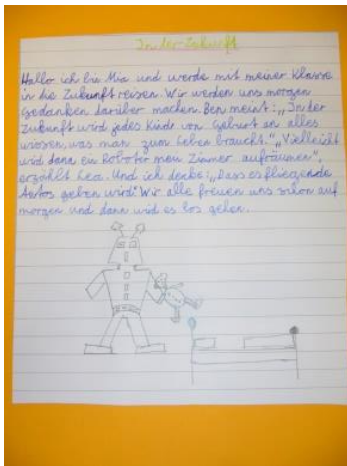 In der Zukunft
Hallo ich bin Mia und werde mit meiner Klasse
in die Zukunft reisen. Wir werden uns morgen
Gedanken darüber machen. Ben meint: „In der
Zukunft wird jedes Kinde von Geburt an alles
wissen, was man zum Leben braucht." „Vielleicht
wird dann ein Roboter mein Zimmer aufräumen",
erzählt Lea. Und ich denke: „Dass es fliegende
Autos geben wird." Wir alle freuen uns schon auf
morgen und dann wird es los gehen.